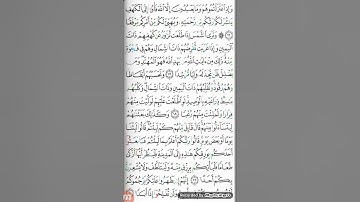 وَإِذِ اعْتَزَلْتُمُوهُمْ وَمَا يَعْبُدُونَ إِلَّا اللَّهَ فَأْوُوا إِلَى الْكَهْفِ
يَنشُرْ لَكُمْ رَبُّكُم مِّن رَّحْمَتِهِ وَيُهَيِّئْ لَكُم مِّنْ أَمْرِكُم مِّرْفَقًا
۞ وَتَرَى الشَّمْسَ إِذَا طَلَعَت تَّزَاوَرُ عَن كَهْفِهِمْ ذَاتَ
الْيَمِينِ وَإِذَا غَرَبَت تَّقْرِضُهُمْ ذَاتَ الشِّمَالِ وَهُمْ فِي فَجْوَةٍ
مِّنْهُ ذَٰلِكَ مِنْ آيَاتِ اللَّهِ مَن يَهْدِ اللَّهُ فَهُوَ الْمُهْتَدِ وَمَن
يُضْلِلْ فَلَن تَجِدَ لَهُ وَلِيًّا مُّرْشِدًا ١٧ وَتَحْسَبُهُمْ أَيْقَاظًا
وَهُمْ رُقُودٌ وَنُقَلِّبُهُمْ ذَاتَ الْيَمِينِ وَذَاتَ الشِّمَالِ وَكَلْبُهُم
بَاسِطٌ ذِرَاعَيْهِ بِالْوَصِيدِ لَوِ اطَّلَعْتَ عَلَيْهِمْ لَوَلَّيْتَ مِنْهُمْ
فِرَارًا وَلَمُلِئْتَ مِنْهُمْ رُعْبًا ١٨ وَكَذَٰلِكَ بَعَثْنَاهُمْ
لِيَتَسَاءَلُوا بَيْنَهُمْ قَالَ قَائِلٌ مِّنْهُمْ كَمْ لَبِثْتُمْ قَالُوا لَبِثْنَا
يَوْمًا أَوْ بَعْضَ يَوْمٍ قَالُوا رَبُّكُمْ أَعْلَمُ بِمَا لَبِثْتُمْ فَابْعَثُوا
أَحَدَكُم بِوَرِقِكُمْ هَٰذِهِ إِلَى الْمَدِينَةِ فَلْيَنظُرْ أَيُّهَا أَزْكَىٰ
طَعَامًا فَلْيَأْتِكُم بِرِزْقٍ مِّنْهُ وَلْيَتَلَطَّفْ وَلَا يُشْعِرَنَّ
بِكُمْ أَحَدًا ١٩ إِنَّهُمْ إِن يَظْهَرُوا عَلَيْكُمْ يَرْجُمُوكُمْ
وَلَن تُفْلِحُوا إِذًا أَبَدًا